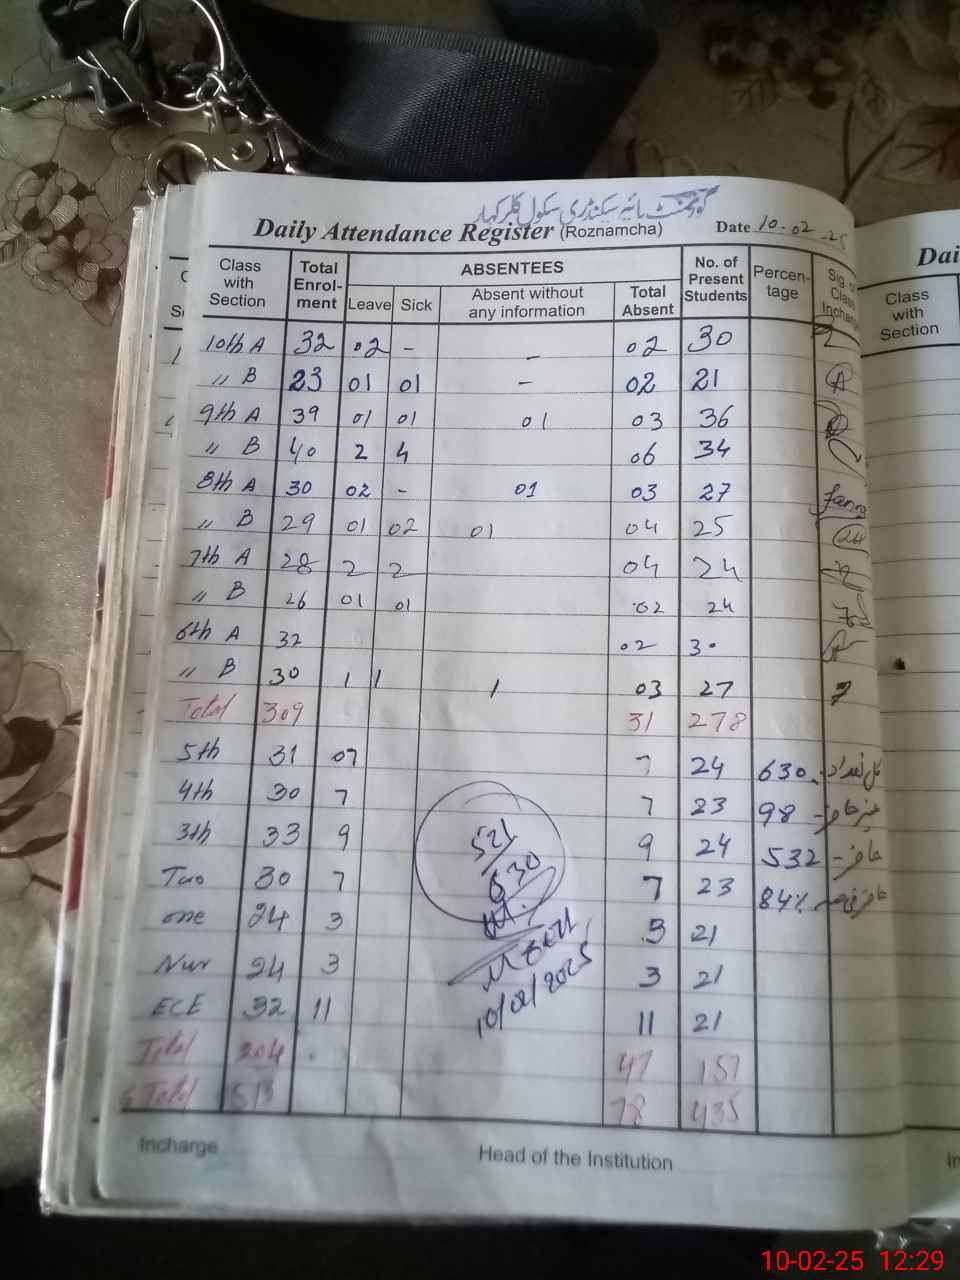 گورنمنٹ ہائیر سیکنڈری سکول کلر کہار
Daily Attendance Register (Roznamcha) Date 10-02-25
Class with Section Total Enrol-ment ABSENTEES No. of Present Students Percen-tage Sig. of Class Incharge
Leave Sick Absent without any information Total Absent
10th A 32 02 - - 02 30
〃 B 23 01 01 - 02 21
9th A 39 01 01 01 03 36
〃 B 40 2 4 06 34
8th A 30 02 - 01 03 27
〃 B 29 01 02 01 04 25
7th A 28 2 2 04 24
〃 B 26 01 01 02 24
6th A 32 02 30
〃 B 30 1 1 1 03 27
Total 309 31 278
5th 31 07 7 24 630 کل تعداد
4th 30 7 7 23 98 غیر حاضر
3th 33 9 9 24 532 حاضر
Two 30 7 7 23 84%
one 24 3 3 21
Nur 24 3 3 21
ECE 32 11 11 21
Total 204 47 157
G Total 513 78 435
521
630
10/02/2025
Incharge Head of the Institution
Dai
Class with Section
10-02-25 12:29